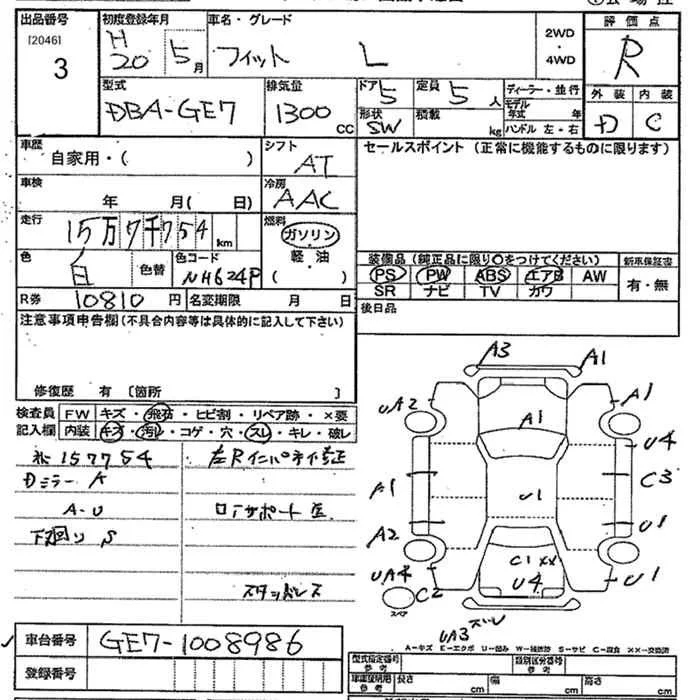 出品番号 初度登録年月 車名・グレード 2WD・4WD 評価点
[2046] 3 H20 5月 フィット L R
型式 排気量 ドア 定員 ディーラー・並行 外装 内装
DBA-GE7 1300cc 5 5人 モデル年式 年 D C
形状 SW 積載 kg ハンドル 左・右
車歴 シフト セールスポイント(正常に機能するものに限ります)
自家用・( ) AT
車検 年 月( 日) 冷房 AAC
走行 15万7千754 km 燃料 ガソリン・軽油・( )
色 白 色替 色コード NH624P
装備品(純正品に限り○をつけてください) 新車保証書
PS PW ABS エアB AW 有・無
SR ナビ TV カワ
R券 10810円 名変期限 月 日 後日品
注意事項申告欄(不具合内容等は具体的に記入して下さい)
修復歴 有 [箇所 ]
検査員記入欄 FW キズ・飛石・ヒビ割・リペア跡・×要
内装 キズ・汚レ・コゲ・穴・スレ・キレ・破レ
157754
Dミラー A
A-U
下回リ S
左Rインパネ修正
ロアサポート
スタッドレス
A3 A1
UA2 A1 A1
U4
A1 U1 C3
A2 U1
UA4 C1 XX U1
スペア C2 U4
UA3
A-キズ E-エクボ U-凹み W-補修跡 S-サビ C-腐食 XX-交換済
✓ 車台番号 GE7-1008986
登録番号
型式指定番号 参考 類別区分番号 参考
車庫証明用 参考 長さ cm 幅 cm 高さ cm